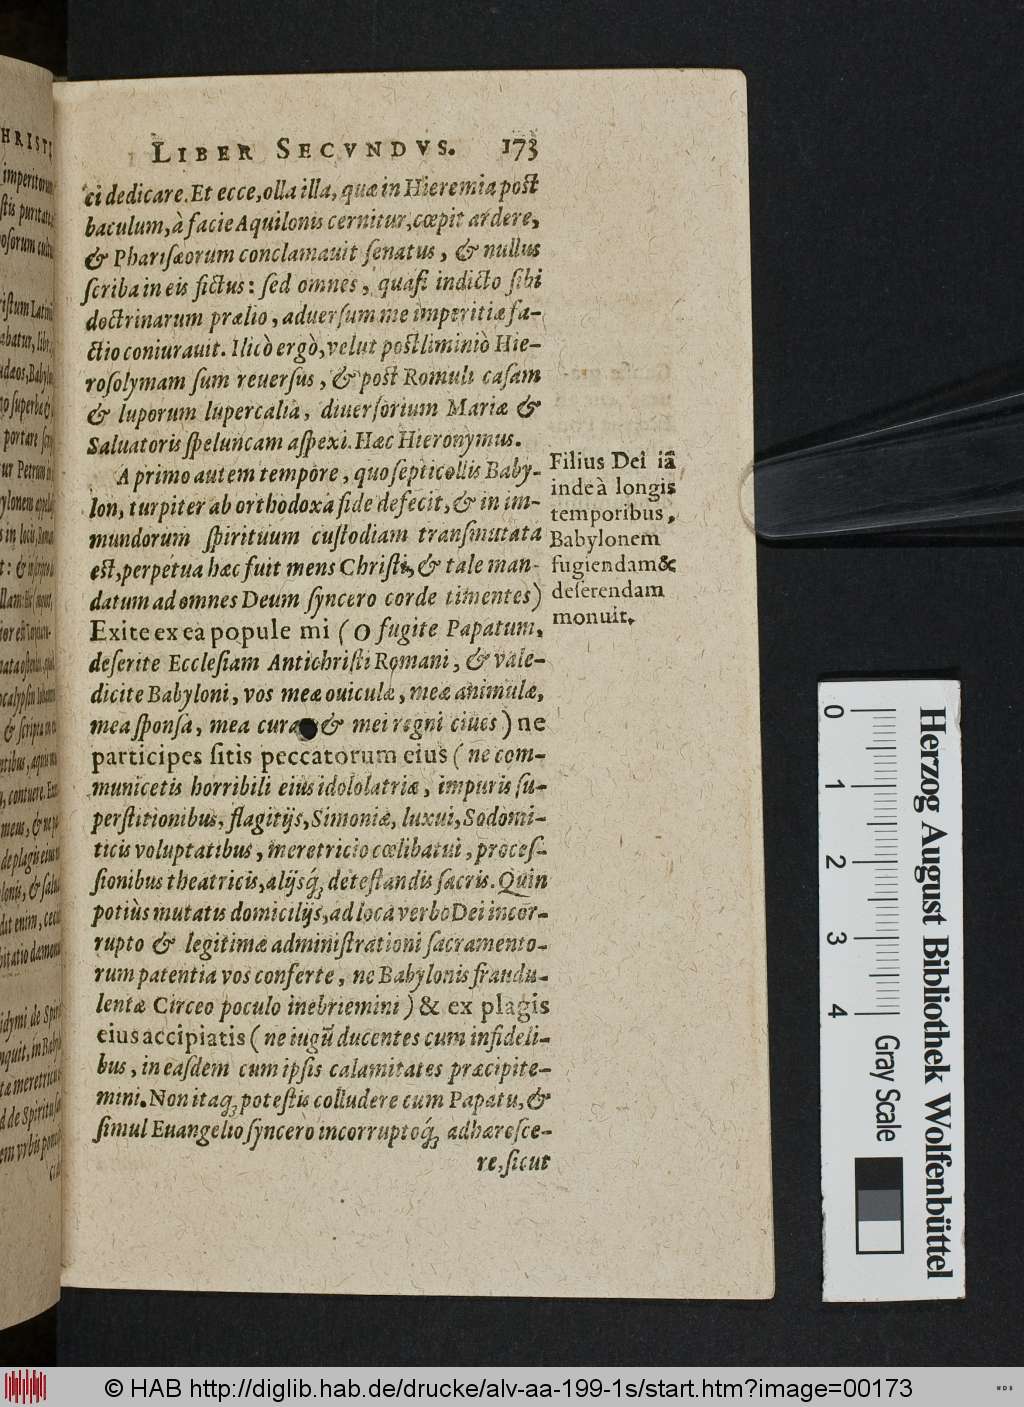 LIBER SECVNDVS. 173
ci dedicare. Et ecce, olla illa, quæ in Hieremia post
baculum, à facie Aquilonis cernitur, cœpit ardere,
& Pharisæorum conclamauit senatus, & nullus
scriba in eis fictus: sed omnes, quasi indicto sibi
doctrinarum prælio, aduersum me imperitiæ fa-
ctio coniurauit. Ilicò ergò, velut postliminiò Hie-
rosolymam sum reuersus, & post Romuli casam
& luporum lupercalia, diuersorium Mariæ &
Saluatoris speluncam aspexi. Hæc Hieronymus.
A primo autem tempore, quo septicollis Baby-
lon, turpiter ab orthodoxa fide defecit, & in im-
mundorum spirituum custodiam transmutata
est, perpetua hæc fuit mens Christi, & tale man-
datum ad omnes Deum syncero corde timentes)
Exite ex ea popule mi (O fugite Papatum,
deserite Ecclesiam Antichristi Romani, & vale-
dicite Babyloni, vos meæ ouiculæ, meæ animulæ,
mea sponsa, mea cura & mei regni ciues) ne
participes sitis peccatorum eius (ne com-
municetis horribili eius idololatriæ, impuris su-
perstitionibus, flagitijs, Simoniæ, luxui, Sodomi-
ticis voluptatibus, meretricio cœlibatui, proces-
sionibus theatricis, alijsq́; detestandis sacris. Quin
potiùs mutatis domicilijs, ad loca verbo Dei incor-
rupto & legitimæ administrationi sacramento-
rum patentia vos conferte, ne Babylonis fraudu-
lentæ Circeo poculo inebriemini) & ex plagis
eius accipiatis (ne iugũ ducentes cum infideli-
bus, in easdem cum ipsis calamitates præcipite-
mini. Non itaq; potestis colludere cum Papatu, &
simul Euangelio syncero incorruptoq́; adhæresce-
re, sicut
Filius Dei iã
inde à longis
temporibus,
Babylonem
fugiendam &
deserendam
monuit.
0 1 2 3 4
Herzog August Bibliothek Wolfenbüttel
Gray Scale
© HAB http://diglib.hab.de/drucke/alv-aa-199-1s/start.htm?image=00173
WDB